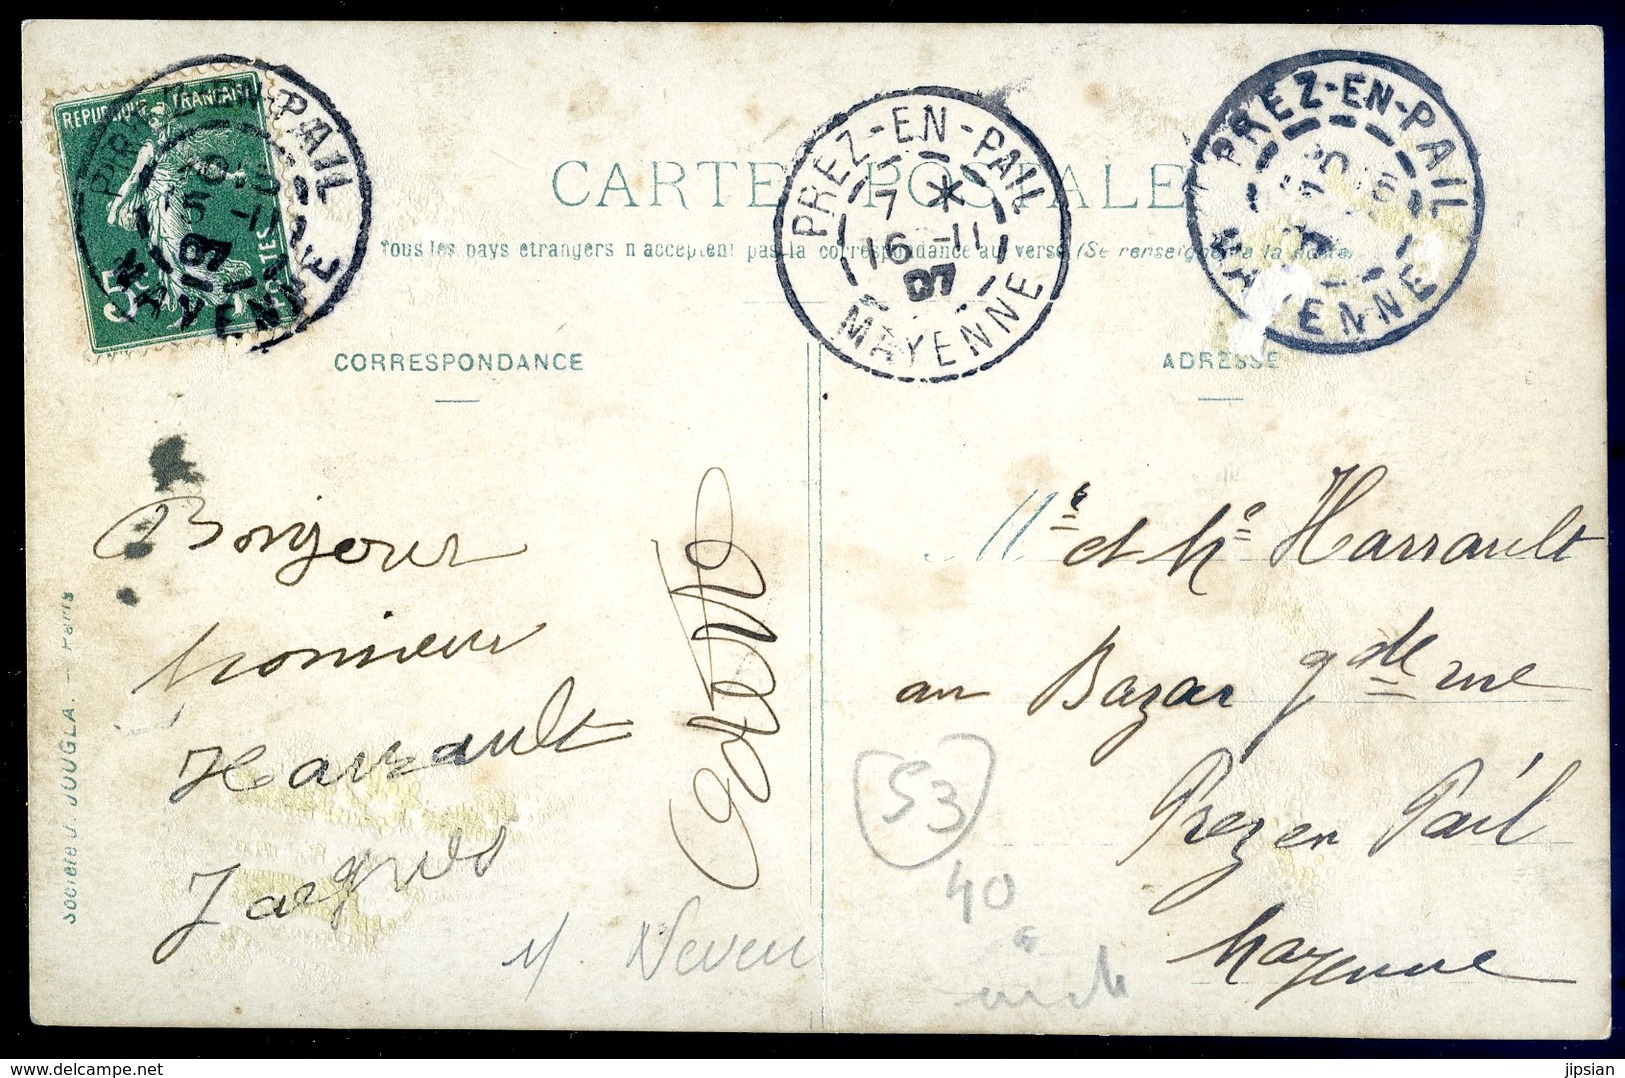 REPUBLIQUE FRANCAISE
5c POSTES
PREZ-EN-PAIL
15 -11
07
MAYENNE
PREZ-EN-PAIL
7 *
16 -11
07
MAYENNE
PREZ-EN-PAIL
MAYENNE
CARTE POSTALE
Tous les pays etrangers n'acceptent pas la correspondance au verso (Se renseigner à la Poste)
CORRESPONDANCE
ADRESSE
Bonjour
Monsieur
Harrault
Jacques
Odette
M. Neveu
Société J. JOUGLA. — Paris
Mr et Me Harrault
au Bazar gde rue
Prez en Pail
Mayenne
53
40
delcampe.net
jipsian